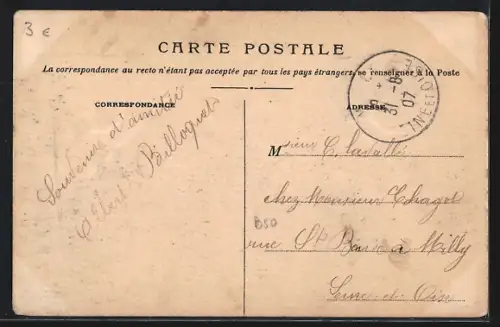 3 €
CARTE POSTALE
La correspondance au recto n'étant pas acceptée par tous les pays étrangers, se renseigner à la Poste
CORRESPONDANCE
ADRESSE
31 -8
07
Souvenir d'amitié
Albert Billoquet
Monsieur C. Lavallé
chez Monsieur Chagot
B50
rue St à Milly
Seine-et-Oise